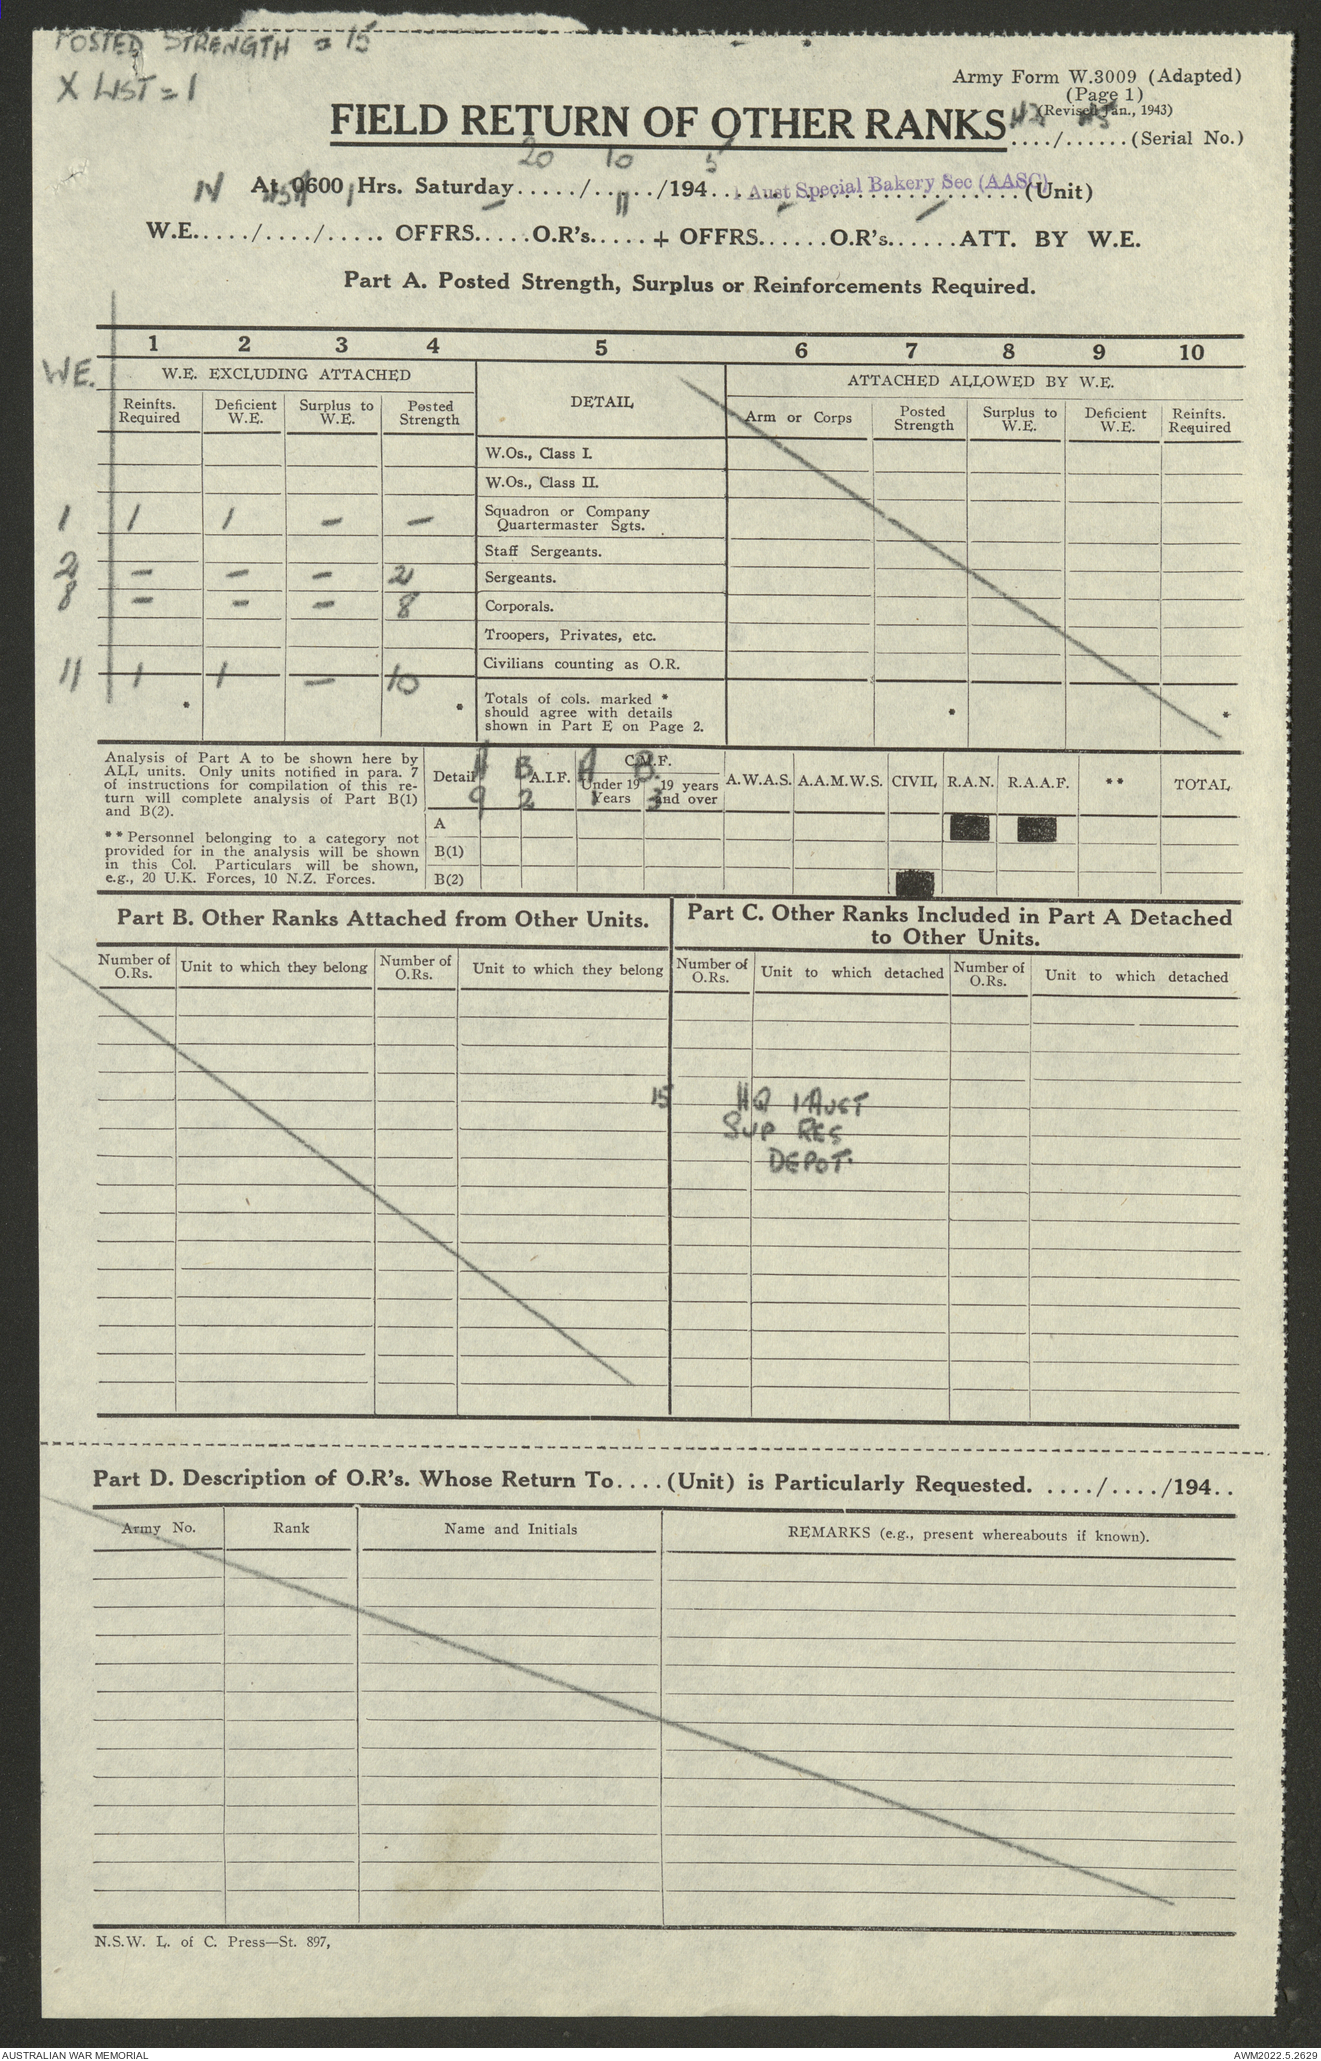 POSTED STRENGTH = 15
X LIST = 1
Army Form W.3009 (Adapted)
(Page 1)
(Revised Jan., 1943)
FIELD RETURN OF OTHER RANKS
..../......(Serial No.)
20 10 5
At 0600 Hrs. Saturday...../...../194.... 1 Aust Special Bakery Sec (AASC) (Unit)
IV 1 – 11 – –
W.E...../..../..... OFFRS.....O.R's.....+ OFFRS......O.R's......ATT. BY W.E.
Part A. Posted Strength, Surplus or Reinforcements Required.
1 2 3 4 5 6 7 8 9 10
WE.
W.E. EXCLUDING ATTACHED
DETAIL
ATTACHED ALLOWED BY W.E.
Reinfts. Required
Deficient W.E.
Surplus to W.E.
Posted Strength
Arm or Corps
Posted Strength
Surplus to W.E.
Deficient W.E.
Reinfts. Required
W.Os., Class I.
W.Os., Class II.
1 1 1 – – Squadron or Company
Quartermaster Sgts.
Staff Sergeants.
2 – – – 2 Sergeants.
8 – – – 8 Corporals.
Troopers, Privates, etc.
Civilians counting as O.R.
11 1 1 – 10
* * Totals of cols. marked * * *
should agree with details
shown in Part E on Page 2.
Analysis of Part A to be shown here by
ALL units. Only units notified in para. 7
of instructions for compilation of this re-
turn will complete analysis of Part B(1)
and B(2).
** Personnel belonging to a category not
provided for in the analysis will be shown
in this Col. Particulars will be shown,
e.g., 20 U.K. Forces, 10 N.Z. Forces.
A B A B
Detail A.I.F. C.M.F. A.W.A.S. A.A.M.W.S. CIVIL R.A.N. R.A.A.F. ** TOTAL
Under 19 Years
19 years and over
9 2 1 3
A
B(1)
B(2)
Part B. Other Ranks Attached from Other Units.
Part C. Other Ranks Included in Part A Detached
to Other Units.
Number of O.Rs.
Unit to which they belong
Number of O.Rs.
Unit to which they belong
Number of O.Rs.
Unit to which detached
Number of O.Rs.
Unit to which detached
15 HQ 1 AUST
SUP RES
DEPOT.
Part D. Description of O.R's. Whose Return To....(Unit) is Particularly Requested. ..../..../194..
Army No. Rank Name and Initials REMARKS (e.g., present whereabouts if known).
N.S.W. L. of C. Press—St. 897,
AUSTRALIAN WAR MEMORIAL
AWM2022.5.2629